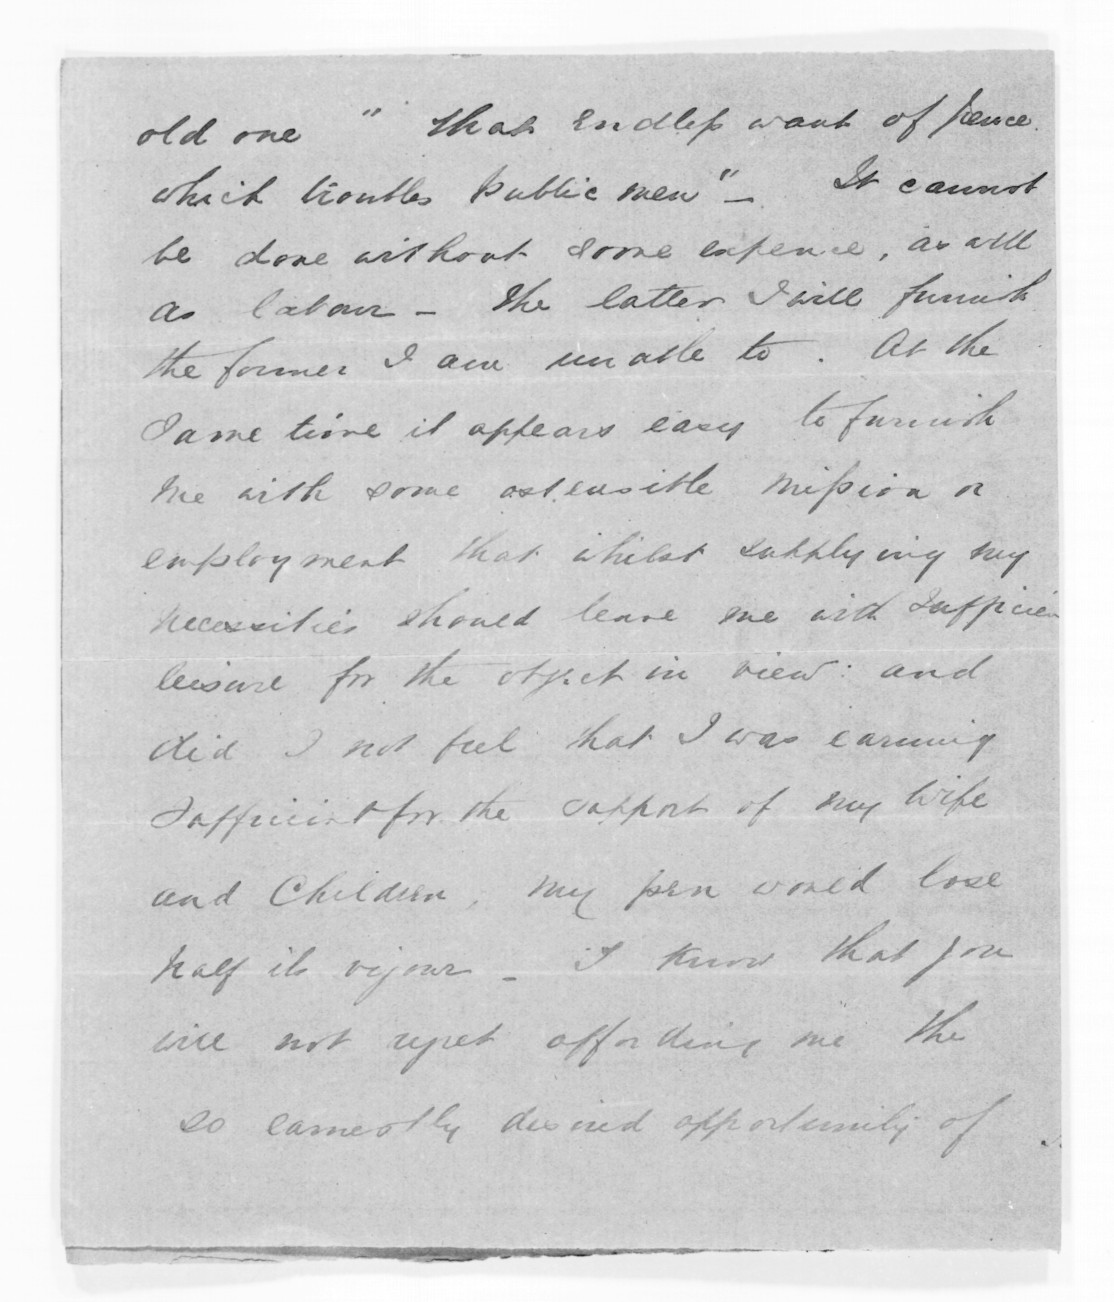 old one " that endless want of pence
which troubles public men" - It cannot
be done without some expence, as well
as labour - the latter I will furnish
the former I am unable to. At the
same time it appears easy to furnish
me with some ostensible mission or
employment that whilst supplying my
necessities should leave me with sufficien
leisure for the object in view: and
did I not feel that I was earning
sufficient for the support of my wife
and Children, my pen would lose
half its vigour - I know that you
will not regret affording me the
so earnestly desired opportunity of